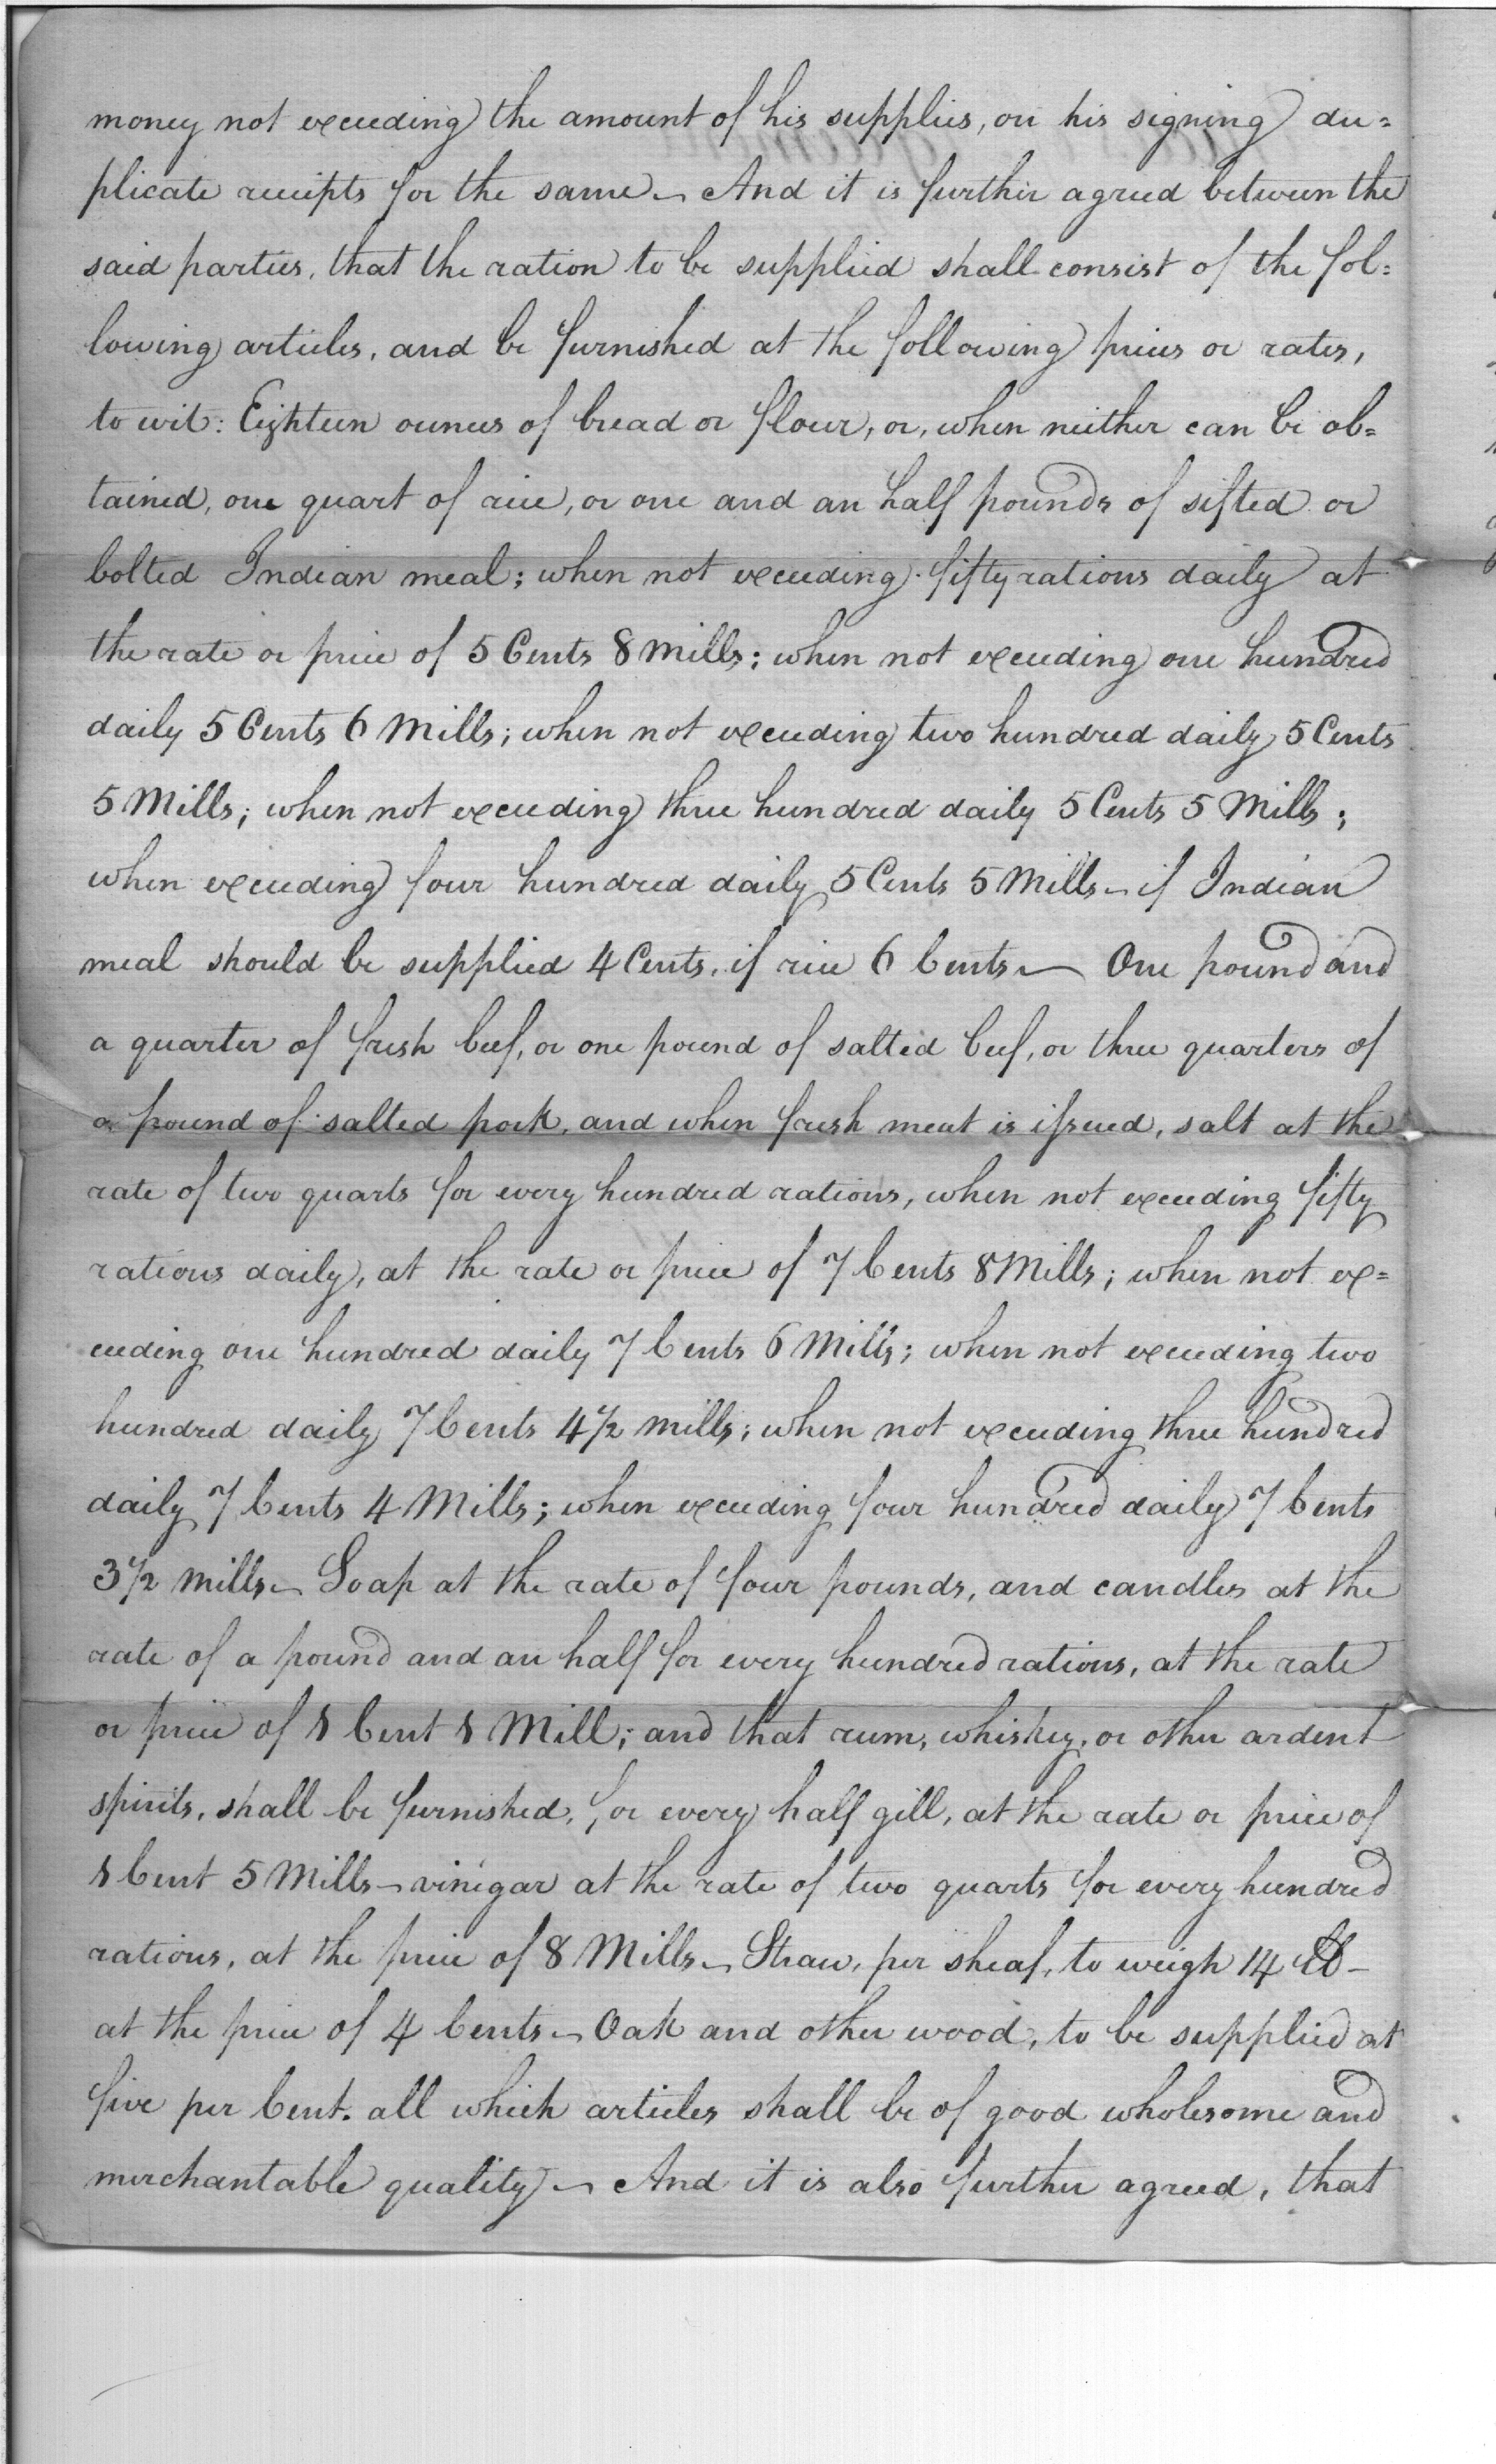 money not exceeding the amount of his supplies, on his signing du=
plicate receipts for the same – And it is further agreed between the
said parties, that the ration to be supplied shall consist of the fol=
lowing articles, and be furnished at the following prices or rates,
to wit: Eighteen ounces of bread or flour, or, when neither can be ob=
tained, one quart of rice, or one and an half pounds of sifted or
bolted Indian meal; when not exceeding fifty rations daily at
the rate or price of 5 Cents 8 Mills; when not exceeding one hundred
daily 5 Cents 6 Mills; when not exceeding two hundred daily 5 Cents
5 Mills; when not exceeding three hundred daily 5 Cents 5 Mills;
when exceeding four hundred daily 5 Cents 5 Mills – if Indian
meal should be supplied 4 Cents, if rice 6 Cents – One pound and
a quarter of fresh beef, or one pound of salted beef, or three quarters of
a pound of salted pork, and when fresh meat is issued, salt at the
rate of two quarts for every hundred rations, when not exceeding fifty
rations daily, at the rate or price of 7 Cents 8 Mills; when not ex=
ceeding one hundred daily 7 Cents 6 Mills; when not exceeding two
hundred daily 7 Cents 4½ mills; when not exceeding three hundred
daily 7 Cents 4 Mills; when exceeding four hundred daily 7 Cents
3½ mills – Soap at the rate of four pounds, and candles at the
rate of a pound and an half for every hundred rations, at the rate
or price of 1 Cent 1 Mill; and that rum, whiskey, or other ardent
spirits, shall be furnished, for every half gill, at the rate or price of
1 Cent 5 Mills – vinegar at the rate of two quarts for every hundred
rations, at the price of 8 Mills – Straw, per sheaf, to weigh 14 lb –
at the price of 4 Cents – Oak and other wood, to be supplied at
five per Cent. all which articles shall be of good wholesome and
merchantable quality – And it is also further agreed, that